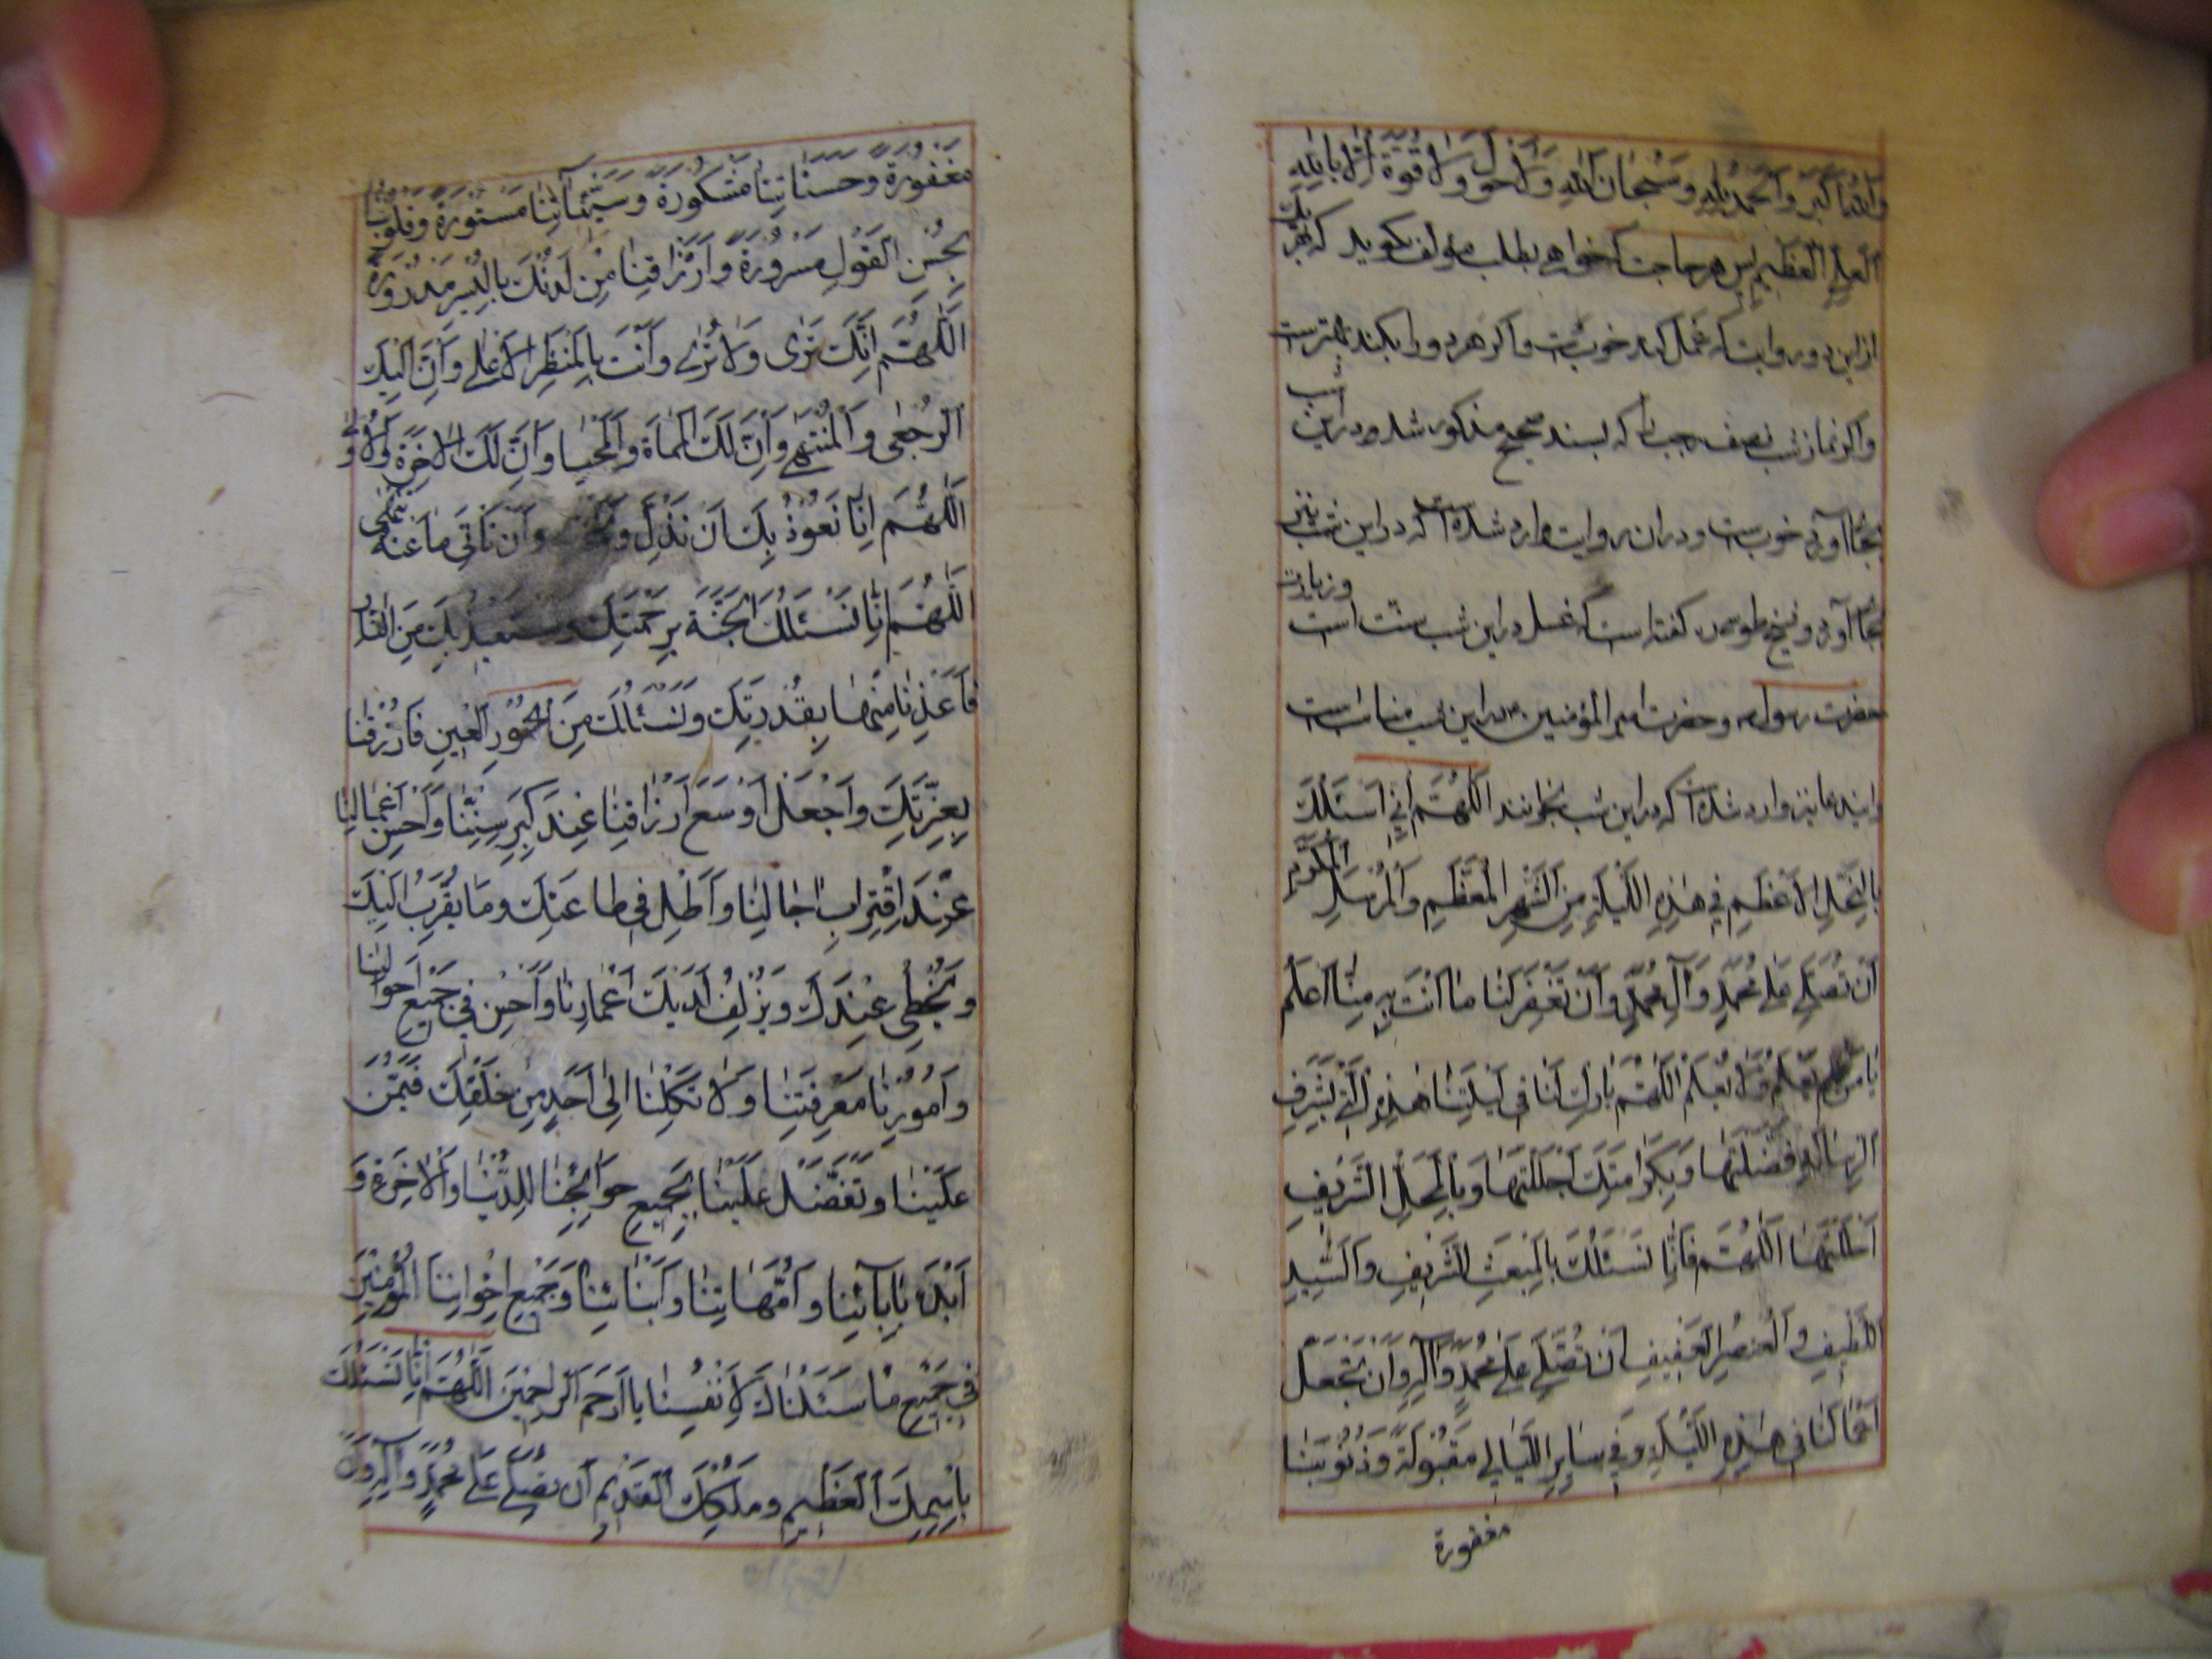 وَاللهُ اَكْبَرُ وَالْحَمْدُ لِلّٰهِ وَسُبْحَانَ اللهِ وَلَا حَوْلَ وَلَا قُوَّةَ اِلَّا بِاللهِ
الْعَلِيِّ الْعَظِيمِ پس هر حاجت که خواهی بطلب مؤلف گوید که بهر یک
از این دو روایت که عمل کند خوبست و اگر هر دو را بکند بهتر است
و اگر نماز شب نصف رجب را که بسند صحیح مذکور شد و در این شب
بجا آوری خوبست و در ان روایت وارد شده است که در این شب نیز
بجا آوری و شیخ طوسی ره گفته است که غسل در این شب سنّت است و زیارت
حضرت رسول ص و حضرت امیر المؤمنین ع در این شب مناسب است
و این دعا نیز وارد شده است که در این شب بخوانند اَللّٰهُمَّ اِنِّي اَسْئَلُكَ
بِالتَّجَلِّي الْاَعْظَمِ فِي هٰذِهِ اللَّيْلَةِ مِنَ الشَّهْرِ الْمُعَظَّمِ وَالْمُرْسَلِ الْمُكَرَّمِ
اَنْ تُصَلِّيَ عَلٰى مُحَمَّدٍ وَآلِ مُحَمَّدٍ وَاَنْ تَغْفِرَ لَنَا مَا اَنْتَ بِهِ مِنَّا اَعْلَمُ
يَا مَنْ يَعْلَمُ وَلَا نَعْلَمُ اَللّٰهُمَّ بَارِكْ لَنَا فِي لَيْلَتِنَا هٰذِهِ الَّتِي بِشَرَفِ
الرِّسَالَةِ فَضَّلْتَهَا وَبِكَرَامَتِكَ اَجْلَلْتَهَا وَبِالْمَحَلِّ الشَّرِيفِ
اَحْلَلْتَهَا اَللّٰهُمَّ فَاِنَّا نَسْئَلُكَ بِالْمَبْعَثِ الشَّرِيفِ وَالسَّيِّدِ
اللَّطِيفِ وَالْعُنْصُرِ الْعَفِيفِ اَنْ تُصَلِّيَ عَلٰى مُحَمَّدٍ وَآلِهِ وَاَنْ تَجْعَلَ
اَعْمَالَنَا فِي هٰذِهِ اللَّيْلَةِ وَفِي سَايِرِ اللَّيَالِي مَقْبُولَةً وَذُنُوبَنَا
مغفورة
مَغْفُورَةً وَحَسَنَاتِنَا مَشْكُورَةً وَسَيِّئَاتِنَا مَسْتُورَةً وَقُلُوبَنَا
بِحُسْنِ الْقَوْلِ مَسْرُورَةً وَاَرْزَاقَنَا مِنْ لَدُنْكَ بِالْيُسْرِ مَدْرُورَةً
اَللّٰهُمَّ اِنَّكَ تَرٰى وَلَا تُرٰى وَاَنْتَ بِالْمَنْظَرِ الْاَعْلٰى وَاِنَّ اِلَيْكَ
الرُّجْعٰى وَالْمُنْتَهٰى وَاِنَّ لَكَ الْمَمَاةَ وَالْمَحْيَا وَاِنَّ لَكَ الْاٰخِرَةَ وَالْاُولٰى
اَللّٰهُمَّ اِنَّا نَعُوذُ بِكَ اَنْ نَذِلَّ وَاَنْ نَاْتِيَ مَا عَنْهُ تَنْهٰى
اَللّٰهُمَّ اِنَّا نَسْئَلُكَ الْجَنَّةَ بِرَحْمَتِكَ وَنَسْتَعِيذُ بِكَ مِنَ النَّارِ
فَاَعِذْنَا مِنْهَا بِقُدْرَتِكَ وَنَسْئَلُكَ مِنَ الْحُورِ الْعِينِ فَارْزُقْنَا
بِعِزَّتِكَ وَاجْعَلْ اَوْسَعَ اَرْزَاقِنَا عِنْدَ كِبَرِ سِنِّنَا وَاَحْسَنَ اَعْمَالِنَا
عِنْدَ اقْتِرَابِ اٰجَالِنَا وَاَطِلْ فِي طَاعَتِكَ وَمَا يُقَرِّبُ اِلَيْكَ
وَيُحْظِي عِنْدَكَ وَيُزْلِفُ لَدَيْكَ اَعْمَارَنَا وَاَحْسِنْ فِي جَمِيعِ اَحْوَالِنَا
وَاُمُورِنَا مَعْرِفَتَنَا وَلَا تَكِلْنَا اِلٰى اَحَدٍ مِنْ خَلْقِكَ فَيَمُنَّ
عَلَيْنَا وَتَفَضَّلْ عَلَيْنَا بِجَمِيعِ حَوَائِجِنَا لِلدُّنْيَا وَالْاٰخِرَةِ وَ
اَبْدَءْ بِاٰبَآئِنَا وَاُمَّهَاتِنَا وَاَبْنَائِنَا وَجَمِيعِ اِخْوَانِنَا الْمُؤْمِنِينَ
فِي جَمِيعِ مَا سَئَلْنَاكَ لِاَنْفُسِنَا يَا اَرْحَمَ الرَّاحِمِينَ اَللّٰهُمَّ اِنَّا نَسْئَلُكَ
بِاسْمِكَ الْعَظِيمِ وَمُلْكِكَ الْقَدِيمِ اَنْ تُصَلِّيَ عَلٰى مُحَمَّدٍ وَآلِهِ وَاَنْ